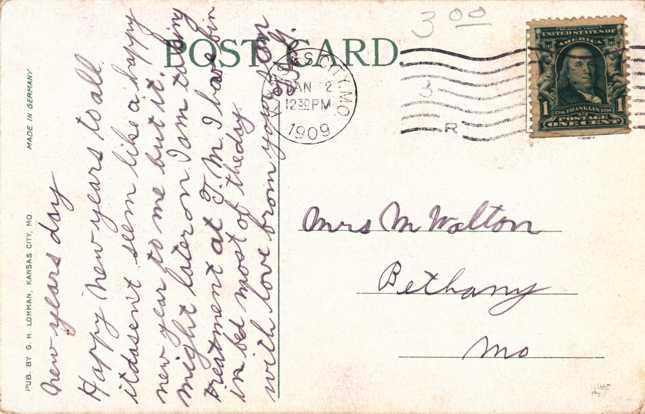 POST CARD.
3 00
KANSAS CITY, MO.
JAN 2
12 30 PM
1909
3
R
UNITED STATES OF
AMERICA
1
FRANKLIN
1
POSTAGE
ONE CENT
Mrs M Walton
Bethany
Mo
MADE IN GERMANY
PUB. BY G. H. LOHMAN, KANSAS CITY, MO.
new years day
Happy new years to all
it dasent seem like a happy
new year to me but it
might later on I am taking
treatment at T. M. I has bin
in bed most of the day
with love from your